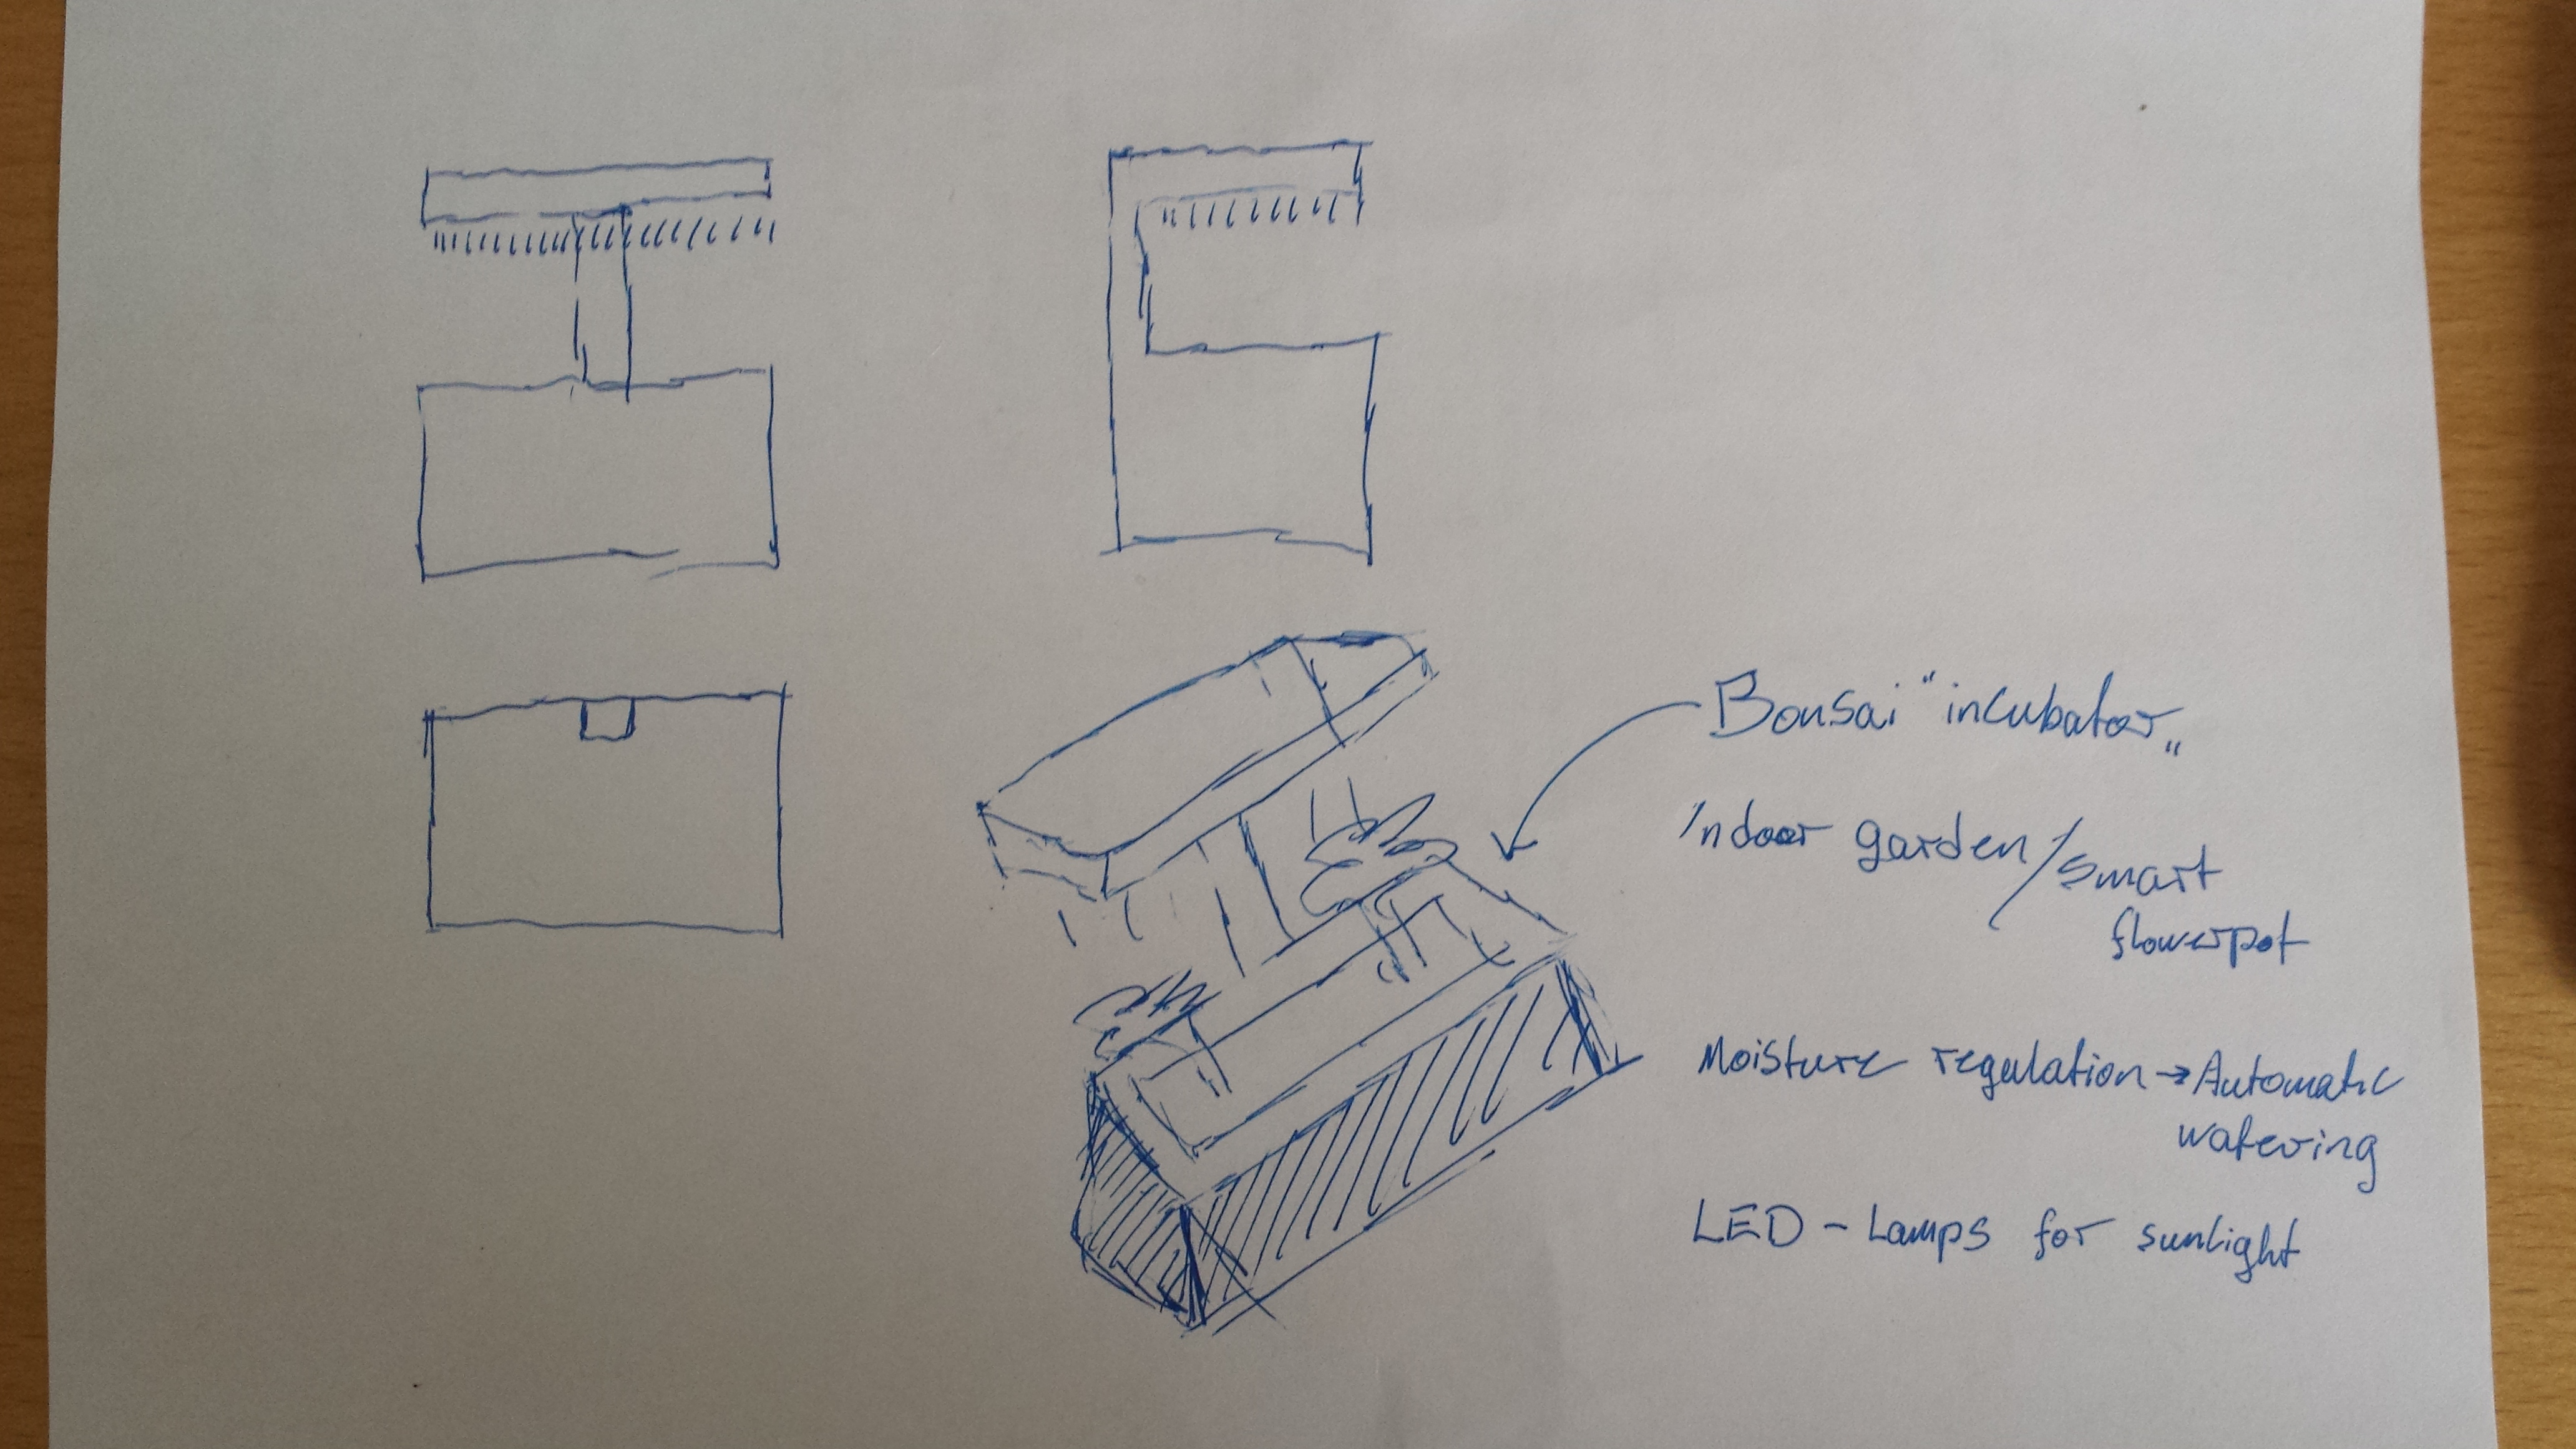 Bonsai "incubator„
Indoor garden/smart
flowerpot
Moisture regulation → Automatic
watering
LED - Lamps for sunlight